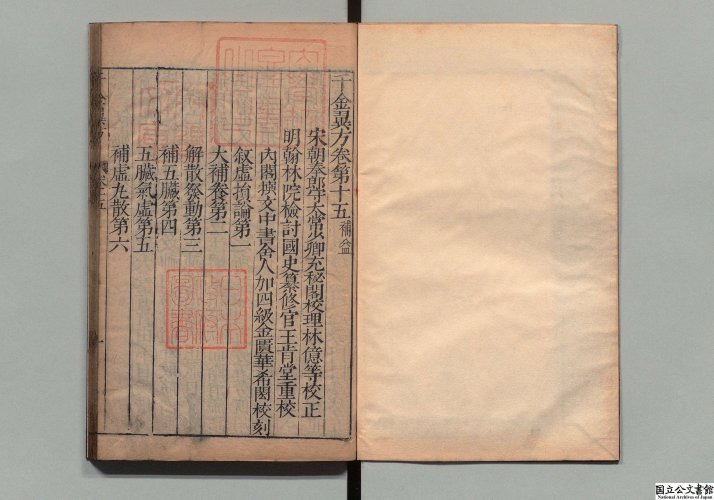 千金翼方卷第十五 補益
宋朝奉郎守太常少卿充秘閣校理林億等校正
明翰林院檢討國史纂修官王肯堂重校
內閣撰文中書舍人加四級金匱華希閎校刻
叙虛損論第一
大補養第二
解散發動第三
補五臟第四
五臟氣虛第五
補虛丸散第六
国立公文書館
National Archives of Japan